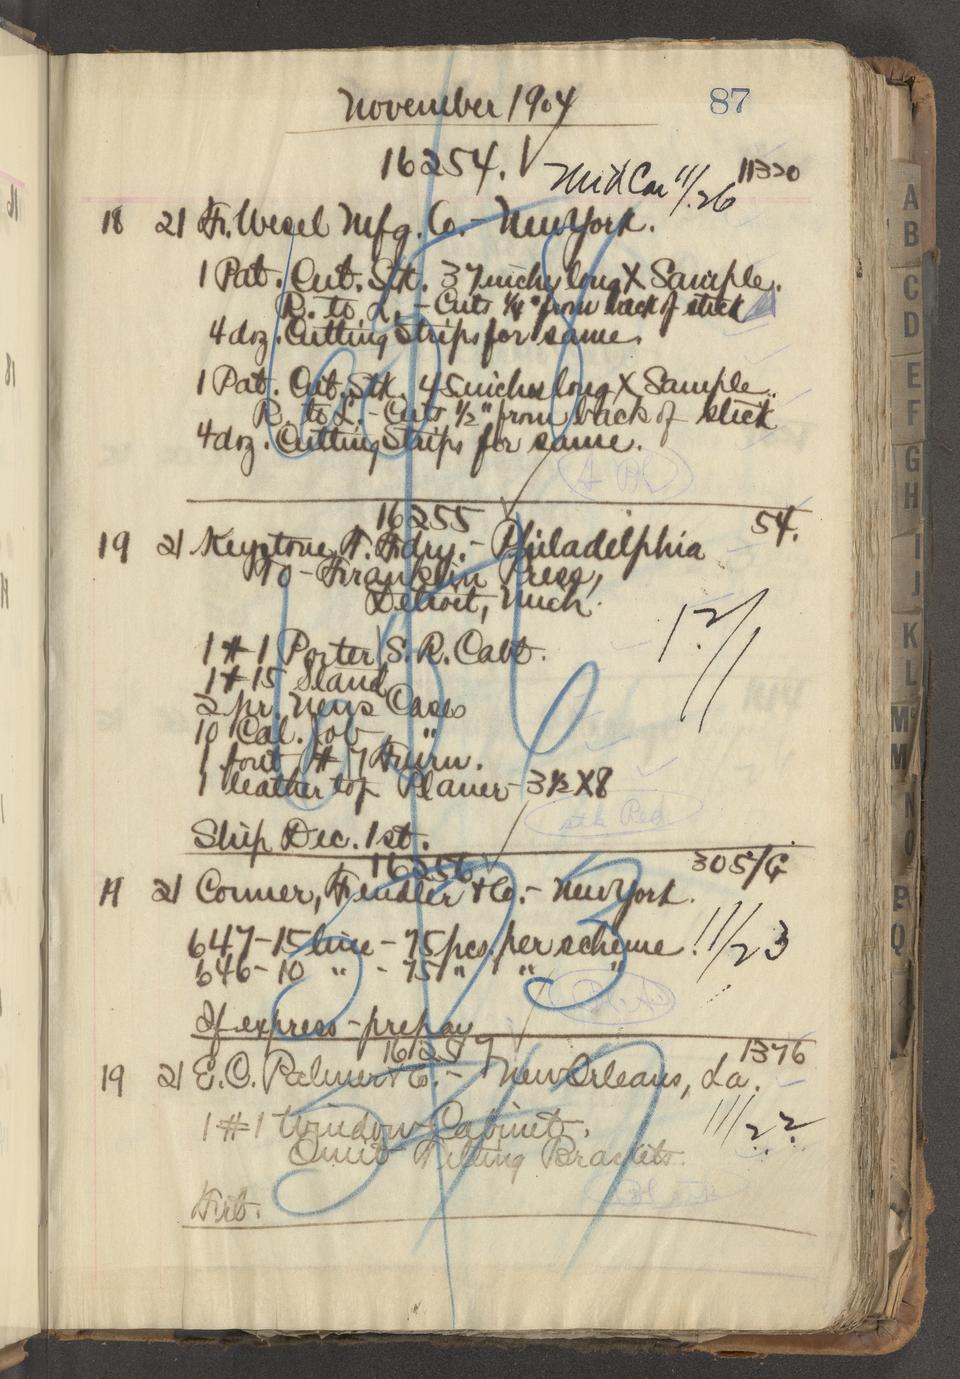 November 1904 87
16254. √
11320
Mid Car 11/26
18 21 H. Wesel Mfg. Co. - New York.
1 Pat. Cut. Stk. 37 inches long X Sample.
R. to L. - Cuts 1/4" from back of stick
4 doz. Cutting Strips for same.
1 Pat. Cut. Stk. 45 inches long X Sample.
R. to L. - Cuts 1/2" from back of stick
4 doz. Cutting Strips for same.
16255 54.
19 21 Keystone T. Fdry. - Philadelphia
To - Franklin Press,
Detroit, Mich.
12/1
1 # 1 Porter S. R. Cabt.
1 # 15 Stand
2 pr. News Cases
10 Cal. Job "
1 font # 7 Furn.
1 leather top Planer - 3 1/2 X 8
Ship Dec. 1st.
16256 305/G
19 21 Conner, Fendler & Co. - New York.
647 - 15 line - 75 pcs. per scheme. 11/23
646 - 10 " - 75 " " "
If express - prepay
16257 1376
19 21 E. C. Palmer & Co. - New Orleans, La.
1 # 1 Window Cabinet. 11/22
Omit Tilting Brackets.
Frt.
A
B
C
D
E
F
G
H
I
J
K
L
M
M
N
O
P
Q